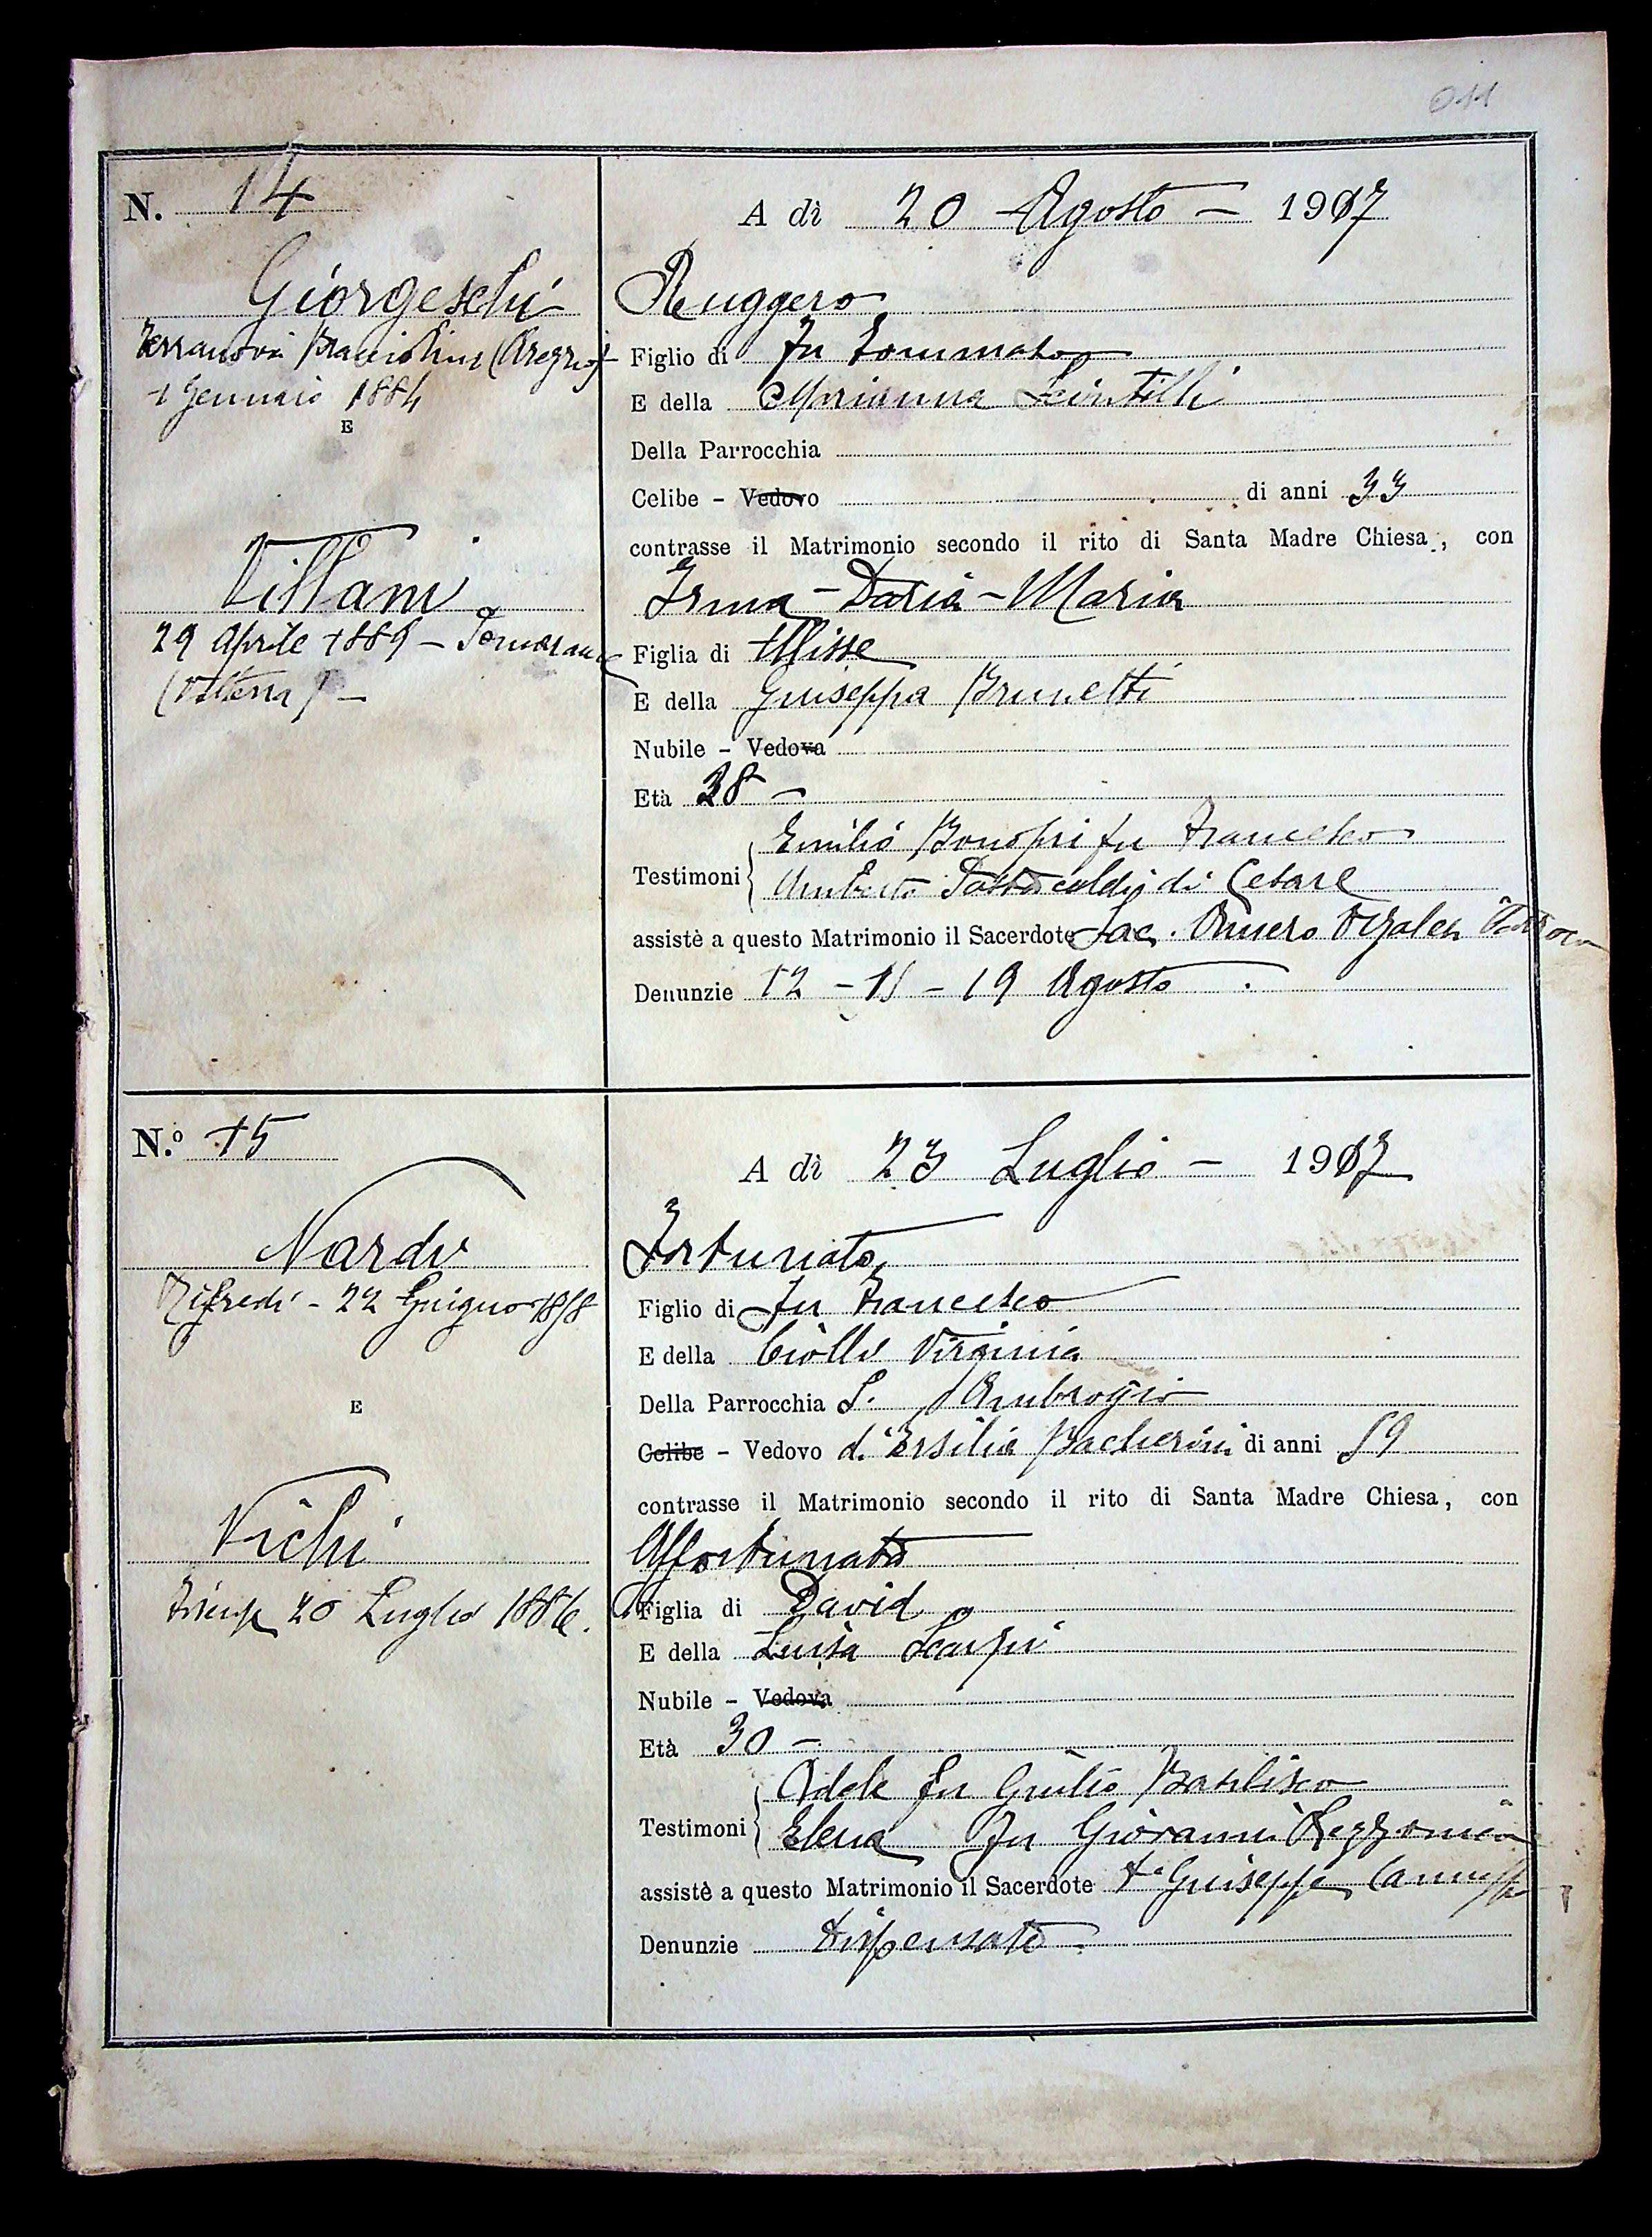 011
N. 14
A dì 20 Agosto - 1917
Giorgeschi
Ruggero
Terranova Bracciolini (Arezzo)
Figlio di fu Tommaso
1 Gennaio 1884
E della Marianna Scintilli
E
Della Parrocchia
Celibe - Vedovo di anni 33
contrasse il Matrimonio secondo il rito di Santa Madre Chiesa, con
Villani
Irma - Daria - Maria
29 Aprile 1889 - Pomarance
Figlia di Ulisse
(Volterra) -
E della Giuseppa Brunetti
Nubile - Vedova
Età 28 -
Emilio Bonofri fu Francesco
Testimoni
Umberto di Cesare
assistè a questo Matrimonio il Sacerdote Sac. Omero
Denunzie 12 - 15 - 19 Agosto
N.º 15
A dì 23 Luglio - 1917
Nardi
Fortunato
Rifredi - 22 Giugno 1858
Figlio di fu Francesco
E della Ciolli Virginia
E
Della Parrocchia S. Ambrogio
Celibe - Vedovo d'Ersilia Bacherini di anni 59
contrasse il Matrimonio secondo il rito di Santa Madre Chiesa, con
Vichi
Affortunata
Firenze 20 Luglio 1886.
Figlia di David
E della Luisa Scarpi
Nubile - Vedova
Età 30 -
Adele fu Giulio Basilisco
Testimoni
Elena fu Giovanni Rezzonico
assistè a questo Matrimonio il Sacerdote Giuseppe
Denunzie dispensato